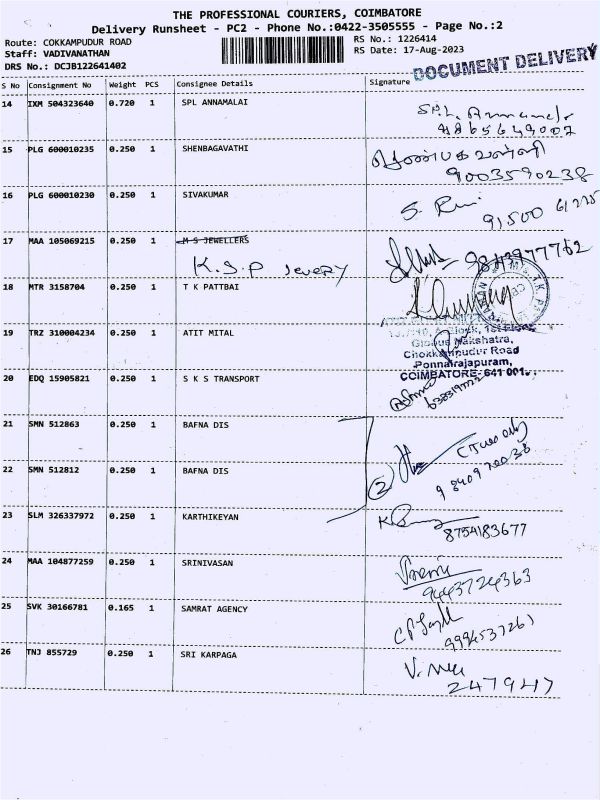 THE PROFESSIONAL COURIERS, COIMBATORE
Delivery Runsheet - PC2 - Phone No.:0422-3505555 - Page No.:2
Route: COKKAMPUDUR ROAD RS No.: 1226414
Staff: VADIVANATHAN RS Date: 17-Aug-2023
DRS No.: DCJB122641402
DOCUMENT DELIVERY
S No Consignment No Weight PCS Consignee Details Signature
14 IXM 504323640 0.720 1 SPL ANNAMALAI
15 PLG 600010235 0.250 1 SHENBAGAVATHI
9003590238
16 PLG 600010230 0.250 1 SIVAKUMAR
17 MAA 105069215 0.250 1 M S JEWELLERS
K.S.P JEVERY
18 MTR 3158704 0.250 1 T K PATTBAI
19 TRZ 310004234 0.250 1 ATIT MITAL
Globus Nakshatra,
Chokkampudur Road
Ponnairajapuram,
COIMBATORE-641 001.
20 EDQ 15905821 0.250 1 S K S TRANSPORT
21 SMN 512863 0.250 1 BAFNA DIS
22 SMN 512812 0.250 1 BAFNA DIS
2
23 SLM 326337972 0.250 1 KARTHIKEYAN
8754183677
24 MAA 104877259 0.250 1 SRINIVASAN
9443724363
25 SVK 30166781 0.165 1 SAMRAT AGENCY
26 TNJ 855729 0.250 1 SRI KARPAGA
247947